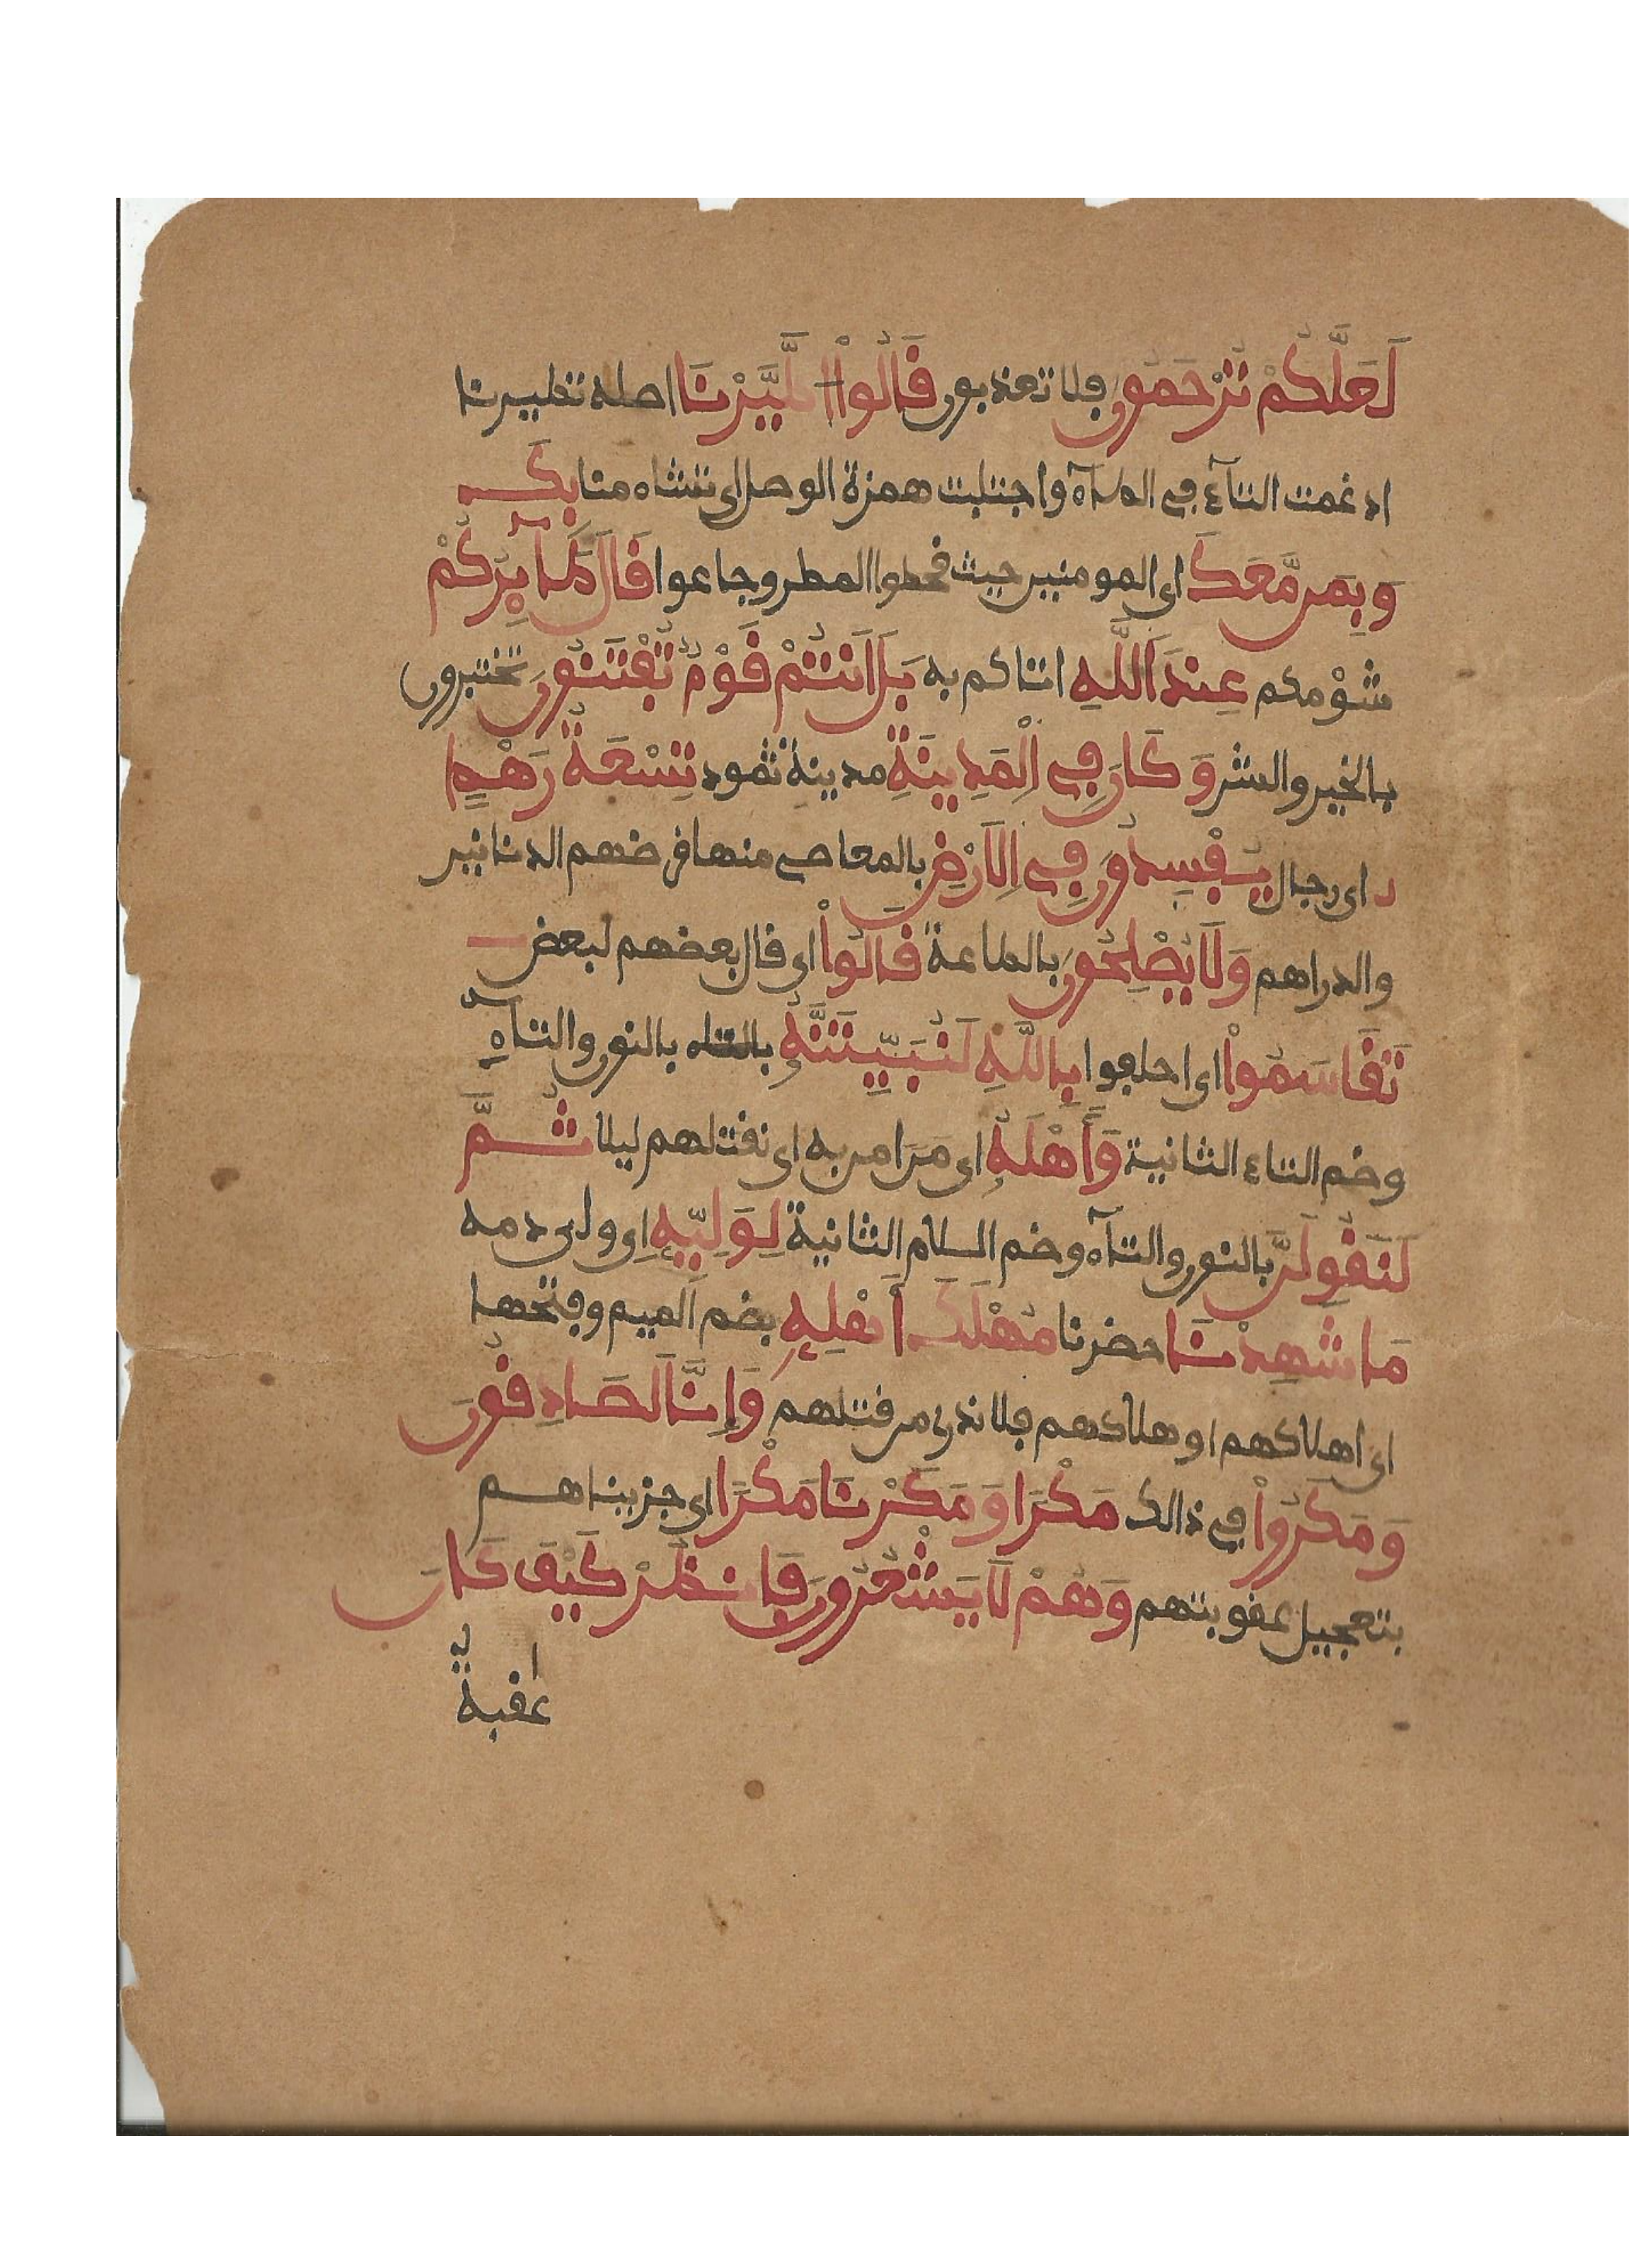 لَعَلَّكُمْ تُرْحَمُونَ فلا تعذبون قَالُواْ اطَّيَّرْنَا اصله تطيرنا
ادغمت التآء في الطآء واجتلبت همزة الوصل اى تشاءمنا بِكَ
وَبِمَن مَّعَكَ اى المومنين حيث قحطوا المطر وجاعوا قَالَ طَٰٓئِرُكُمْ
شُوْمكم عِندَ اَللَّهِ اتاكم به بَلَ اَنتُمْ قَوْمٌ تُفْتَنُونَ تختبرون
بالخير والشر وَكَانَ فِي اِلْمَدِينَةِ مدينة ثمود تِسْعَةُ رَهْطٍ
اى رجال يُفْسِدُونَ فِي اِلَارْضِ بالمعاصى منها قرضهم الدنانير
والدراهم وَلَا يُصْلِحُونَ بالطاعة قَالُواْ اى قال بعضهم لبعض
تَقَاسَمُواْ اى احلفوا بِاللَّهِ لَنُبَيِّتَنَّهُ بالتاء بالنون والتآءِ
وضم التاء الثانية وَأَهْلَهُ اى مَن ءامن به اى نقتلهم ليلا ثُمَّ
لَنَقُولَنَّ بالنون والتآء وضم اللام الثانية لِوَلِيِّهِ اى ولى دمه
مَا شَهِدْنَا حضرنا مُهْلَكَ أَهْلِهِ بضم الميم وفتحها
اى اهلاكهم او هلاكهم فلا ندرى من قتلهم وَإِنَّا لَصَادِقُونَ
وَمَكَرُواْ في ذالك مَكْرًا وَمَكَرْنَا مَكْرًا اى جزيناهم
بتعجيل عقوبتهم وَهُمْ لَا يَشْعُرُونَ فَانظُرْ كَيْفَ كَانَ
عٰقبةُ